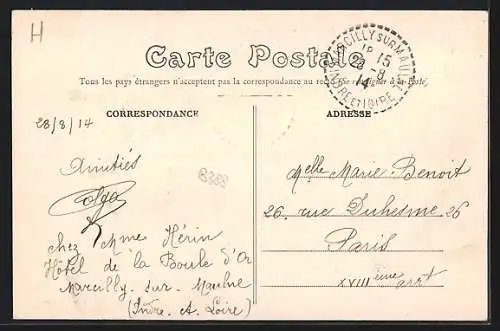 H
Carte Postale
Tous les pays étrangers n'acceptent pas la correspondance au recto (Se renseigner à la Poste)
MARCILLY SUR MAULNE
18 15
28 - 8
14
INDRE ET LOIRE
CORRESPONDANCE
28/8/14
Amitiés
Olga
chez Mme Hérin
Hôtel de la Boule d'Or
Marcilly. sur. Maulne
(Indre. et. Loire)
ADRESSE
Melle Marie Benoit
26. rue Duhesme. 26
Paris
XVIIIième arrt